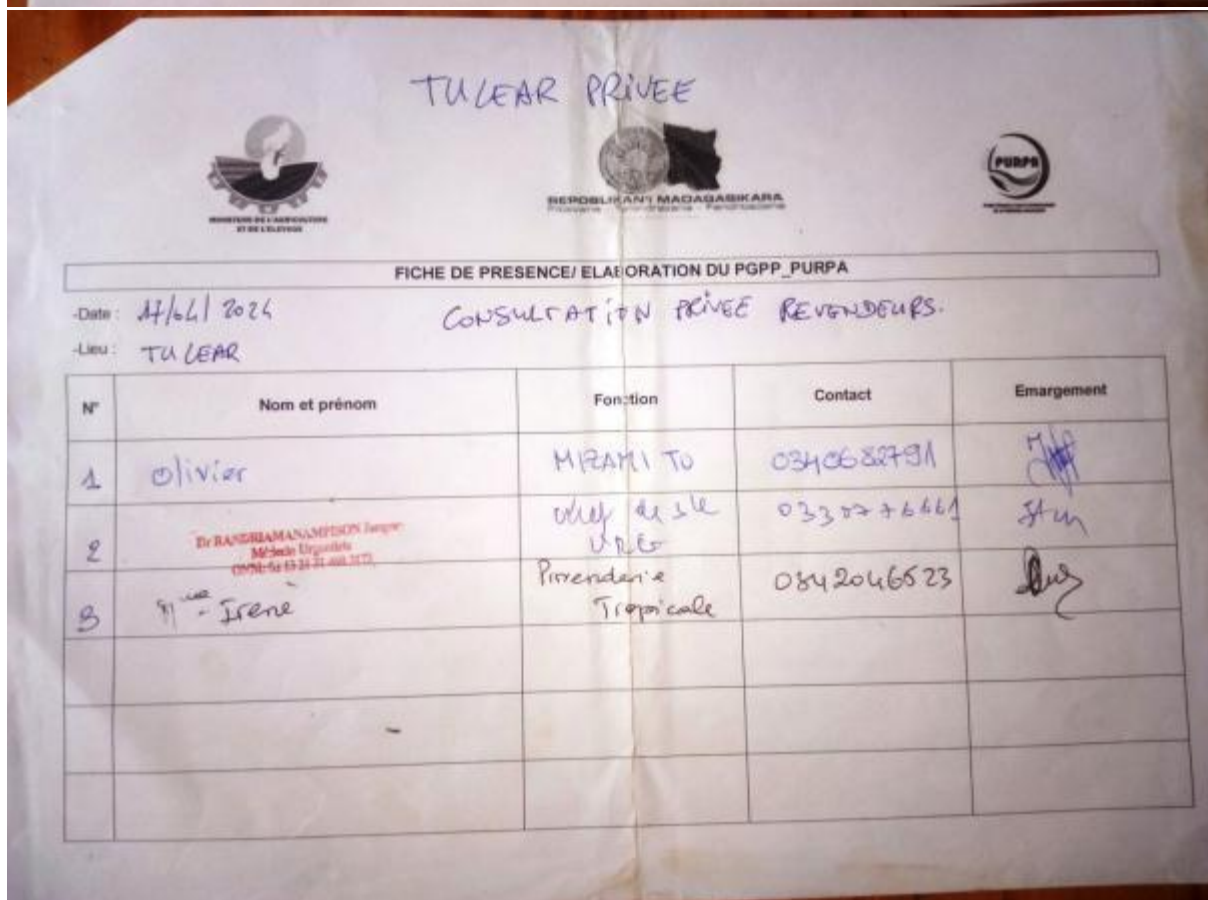 TULEAR PRIVEE
MINISTERE DE L'AGRICULTURE
ET DE L'ELEVAGE
REPOBLIKAN'I MADAGASIKARA
Fitiavana - Tanindrazana - Fandrosoana
PURPA
FICHE DE PRESENCE/ ELABORATION DU PGPP_PURPA
-Date : 17/04/2024
CONSULTATION PRIVEE REVENDEURS.
-Lieu : TULEAR
N° Nom et prénom Fonction Contact Emargement
1 Olivier MIRAMITO 0340682791
2 Dr RANDRIAMANAMPISON
Médecin Urgentiste
chef de
0330776661
3 Mme Irene Tropicale 0342046523